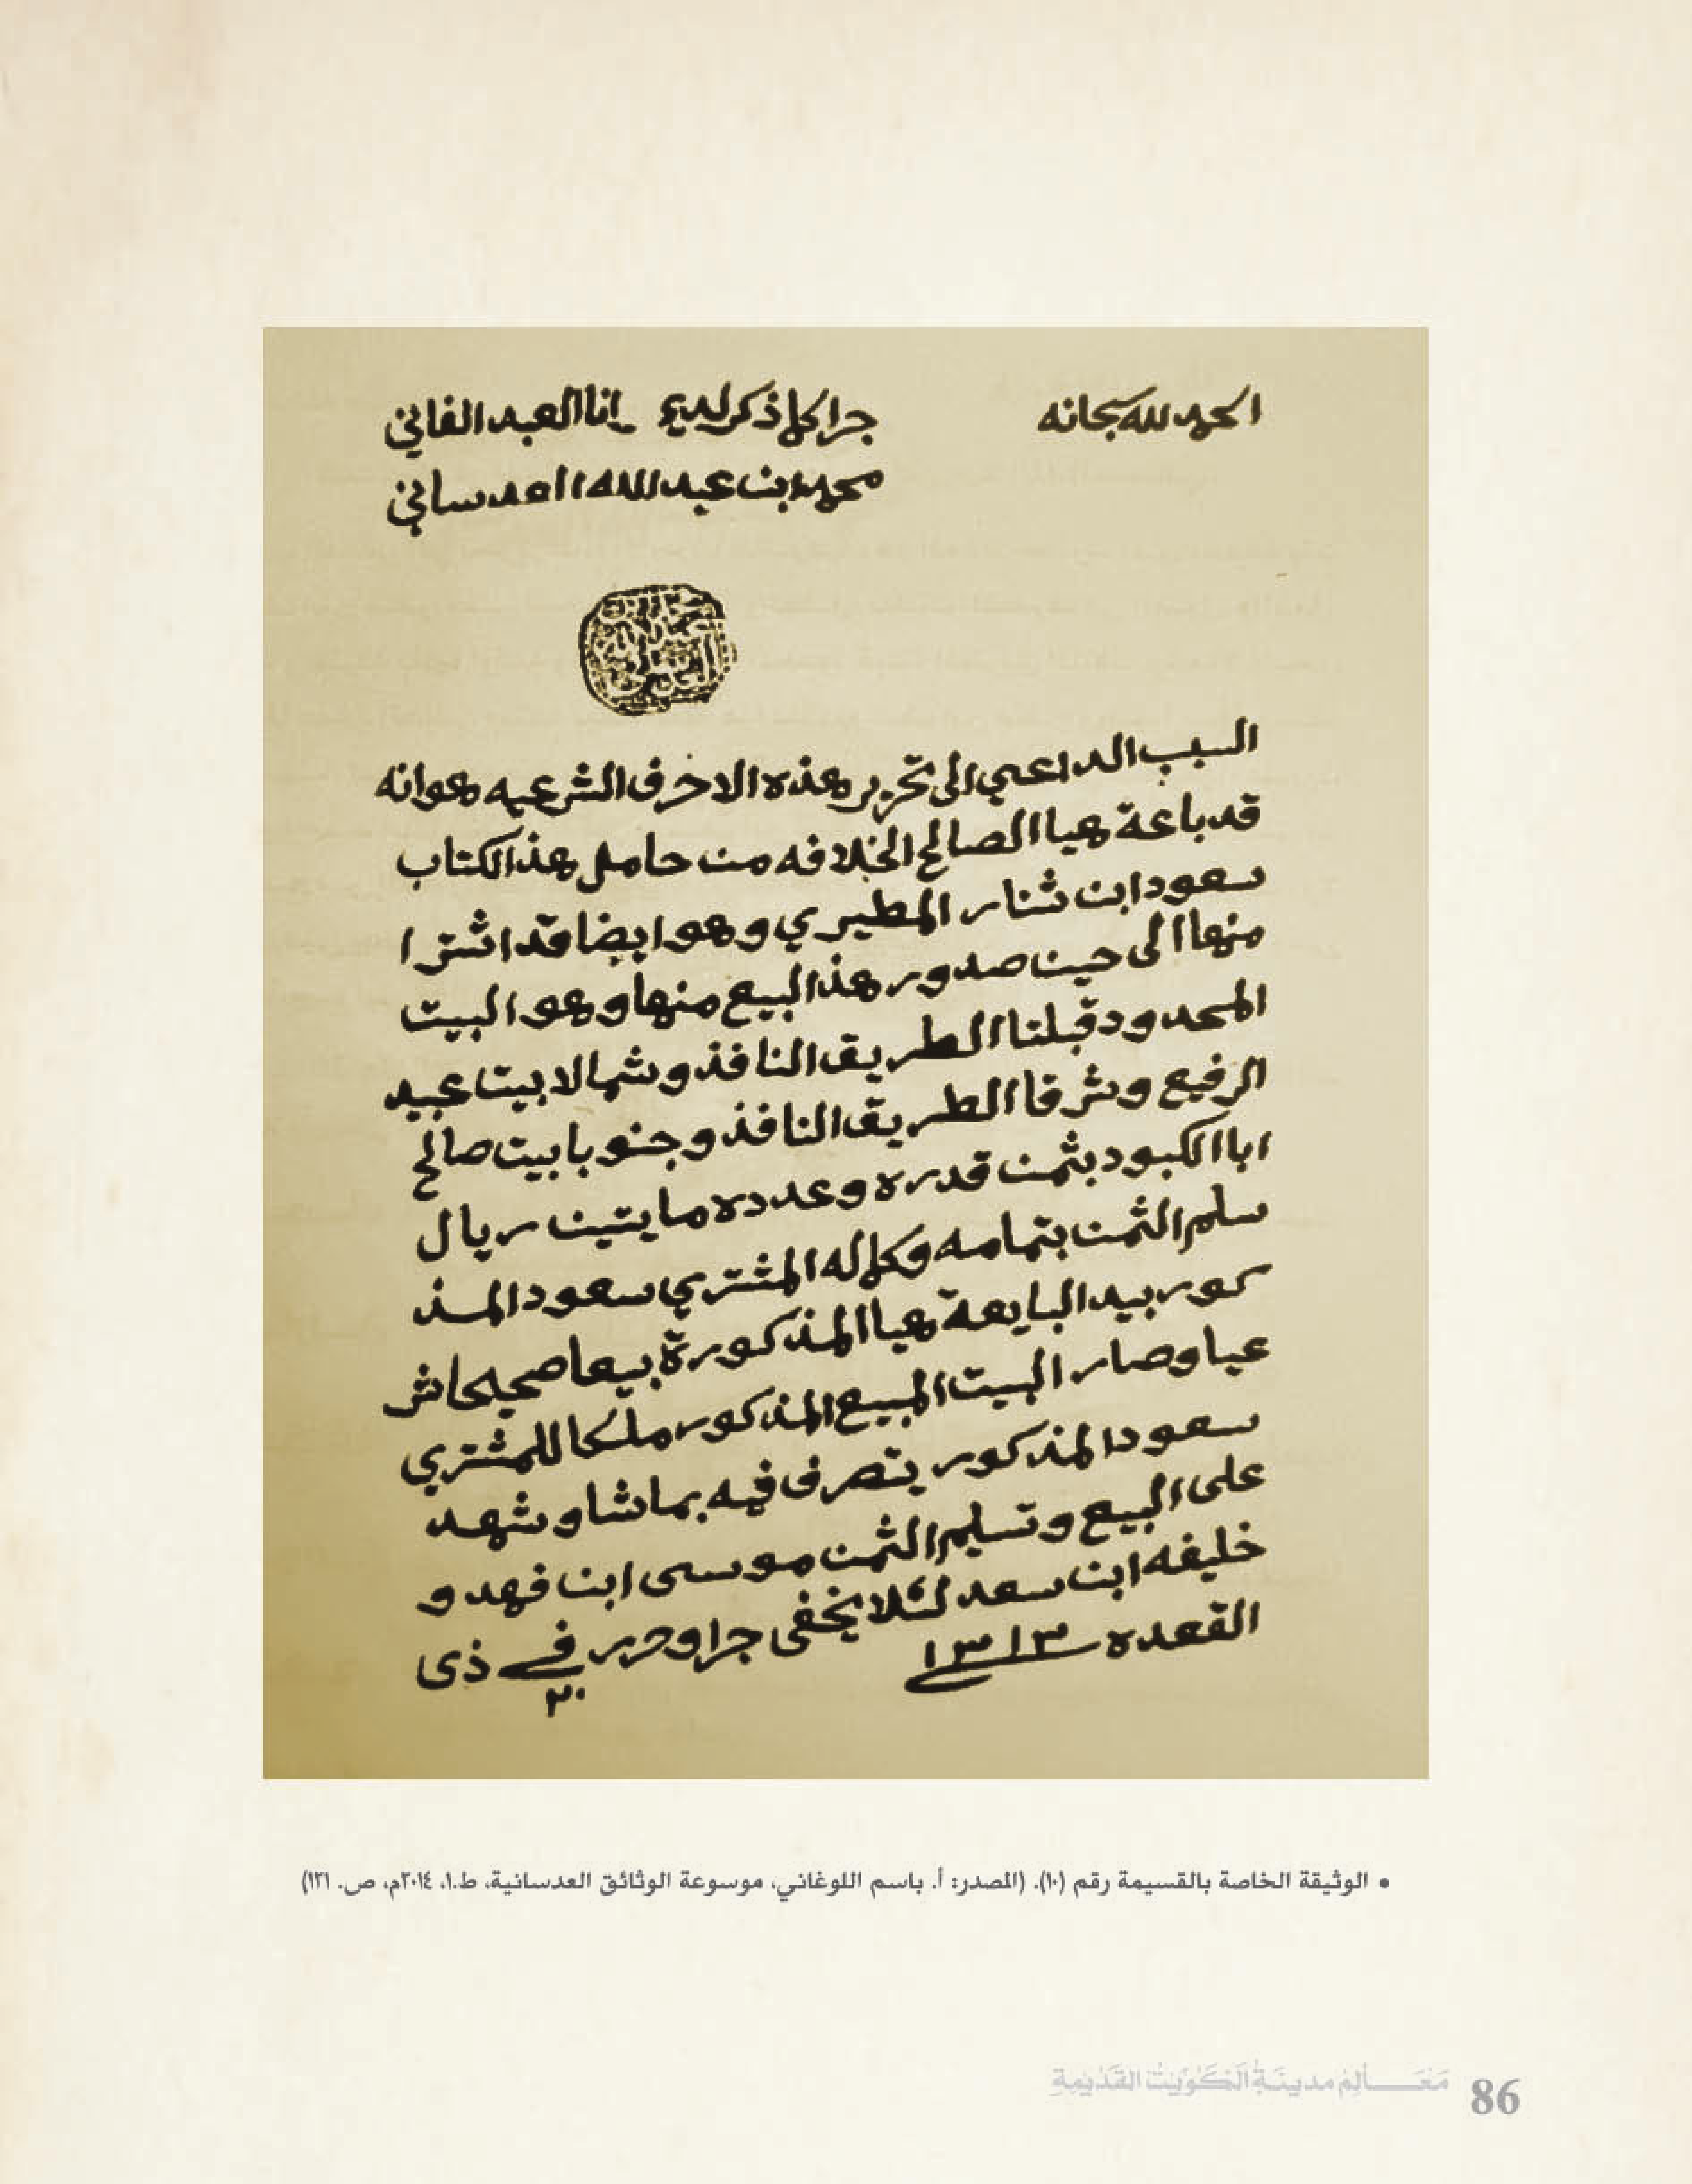 الحمد لله سبحانه
جرا كلما ذكر لدي وانا العبد الفاني
محمد ابن عبد الله العدساني
السبب الداعي الى تحرير هذه الاحرف الشرعيه هو انه
قد باعة هيا الصالح الخلافه من حامل هذ الكتاب
سعود ابن ثنار المطيري وهو ايضا قد اشترا
منها الى حين صدور هذ البيع منها وهو البيت
المحدود قبلتا الطريق النافذ وشمالا بيت عبيد
الرفيع وشرقا الطريق النافذ وجنوبا بيت صالح
ابا الكبود بثمن قدره وعدده مايتين ريال
سلم الثمن بتمامه وكماله المشتري سعود المذ
كور بيد البايعة هيا المذكورة بيعا صحيحا شر
عيا وصار البيت المبيع المذكور ملكا للمشتري
سعود المذكور يتصرف فيه بما شا وشهد
على البيع وتسليم الثمن موسى ابن فهد و
خليفه ابن سعد لئلا يخفى جرا وحرر في ٢٠ ذى
القعده ١٣١٣
• الوثيقة الخاصة بالقسيمة رقم (١٠). (المصدر: أ. باسم اللوغاني، موسوعة الوثائق العدسانية، ط١، ٢٠١٤م، ص. ١٢١)
معالم مدينة الكويت القديمة 86